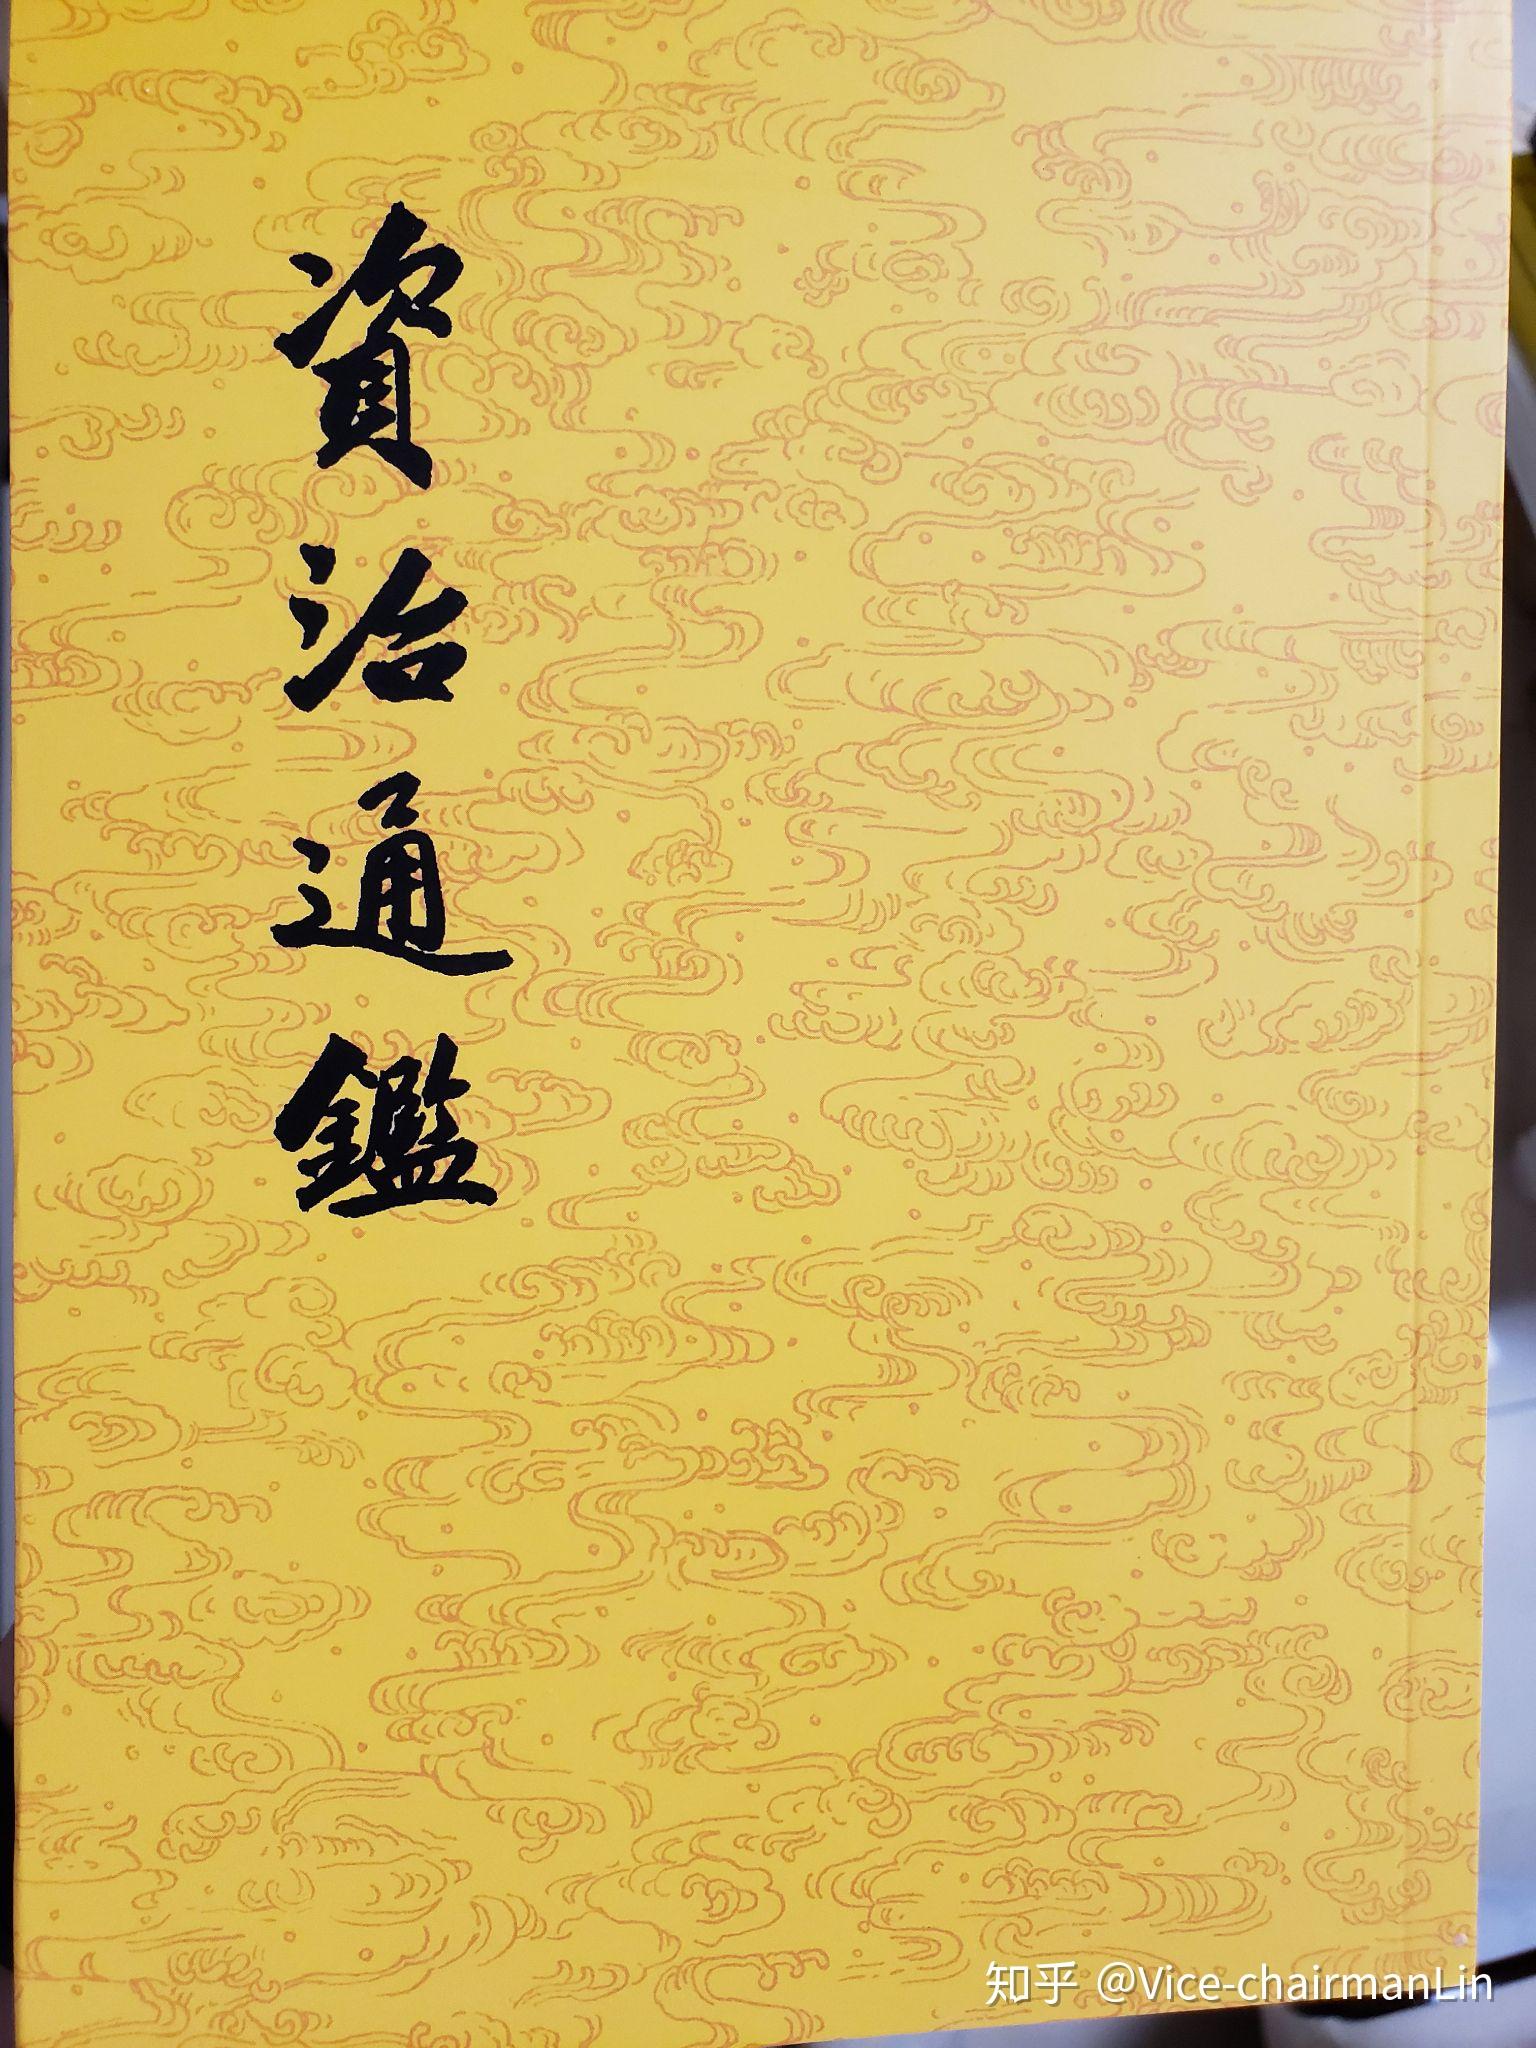 資治通鑑
知乎 @Vice-chairmanLin